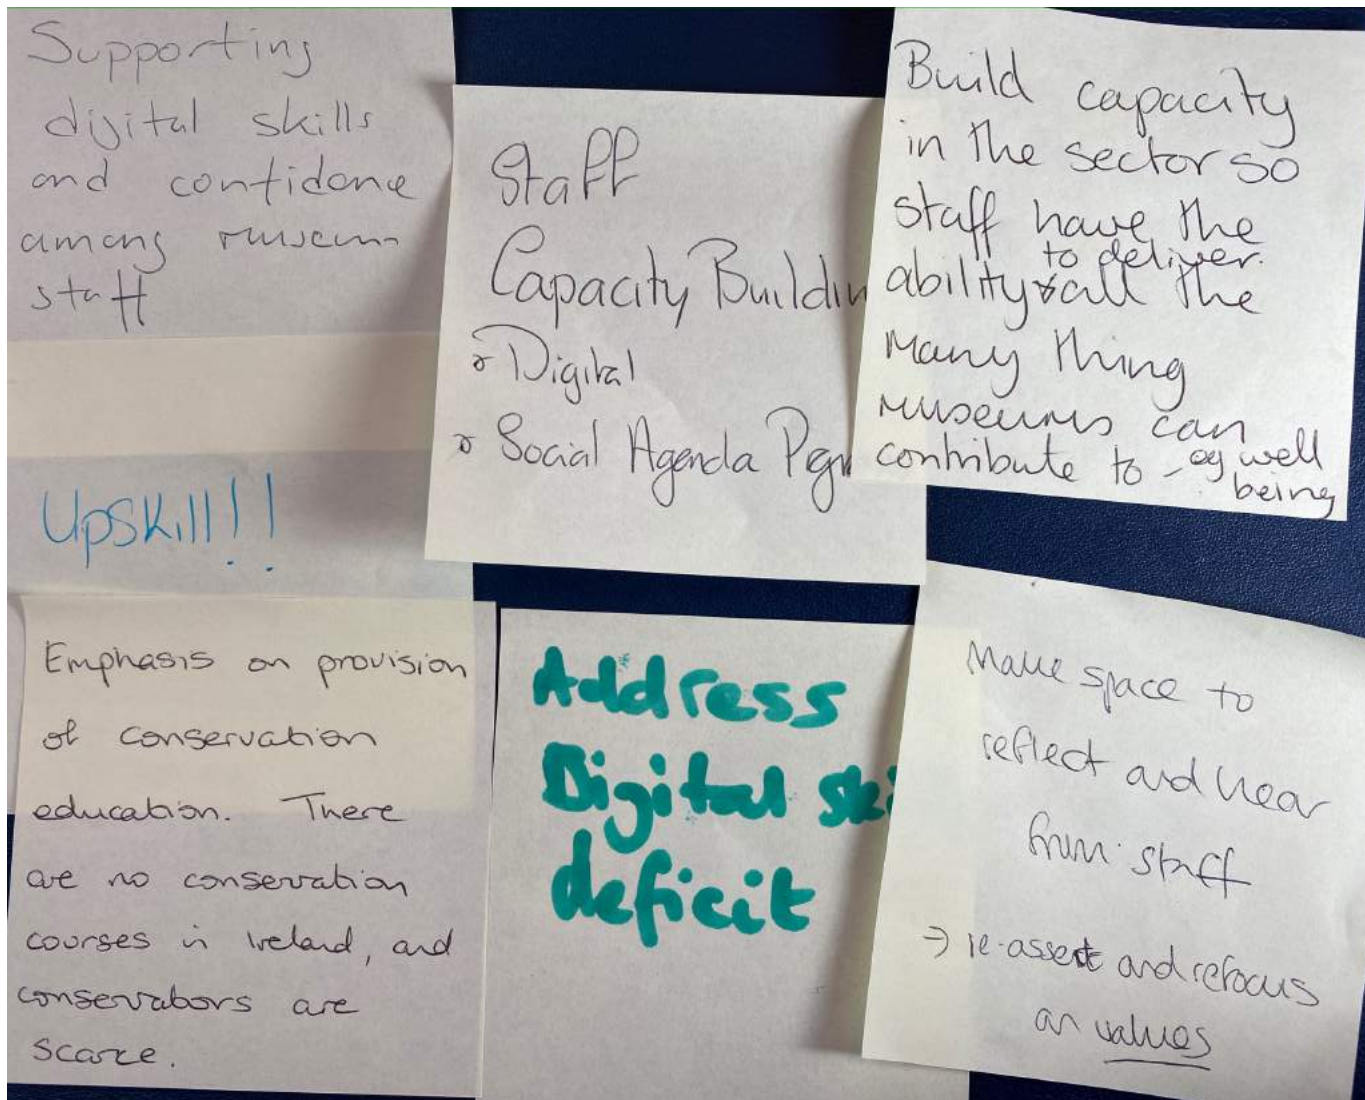 Supporting
digital skills
and confidence
among museum
staff
Upskill!!
Staff
Capacity Buildin
Digital
Social Agenda Pgr
Build capacity
in the sector so
staff have the
to deliver.
ability all the
many thing
museums can
contribute to - eg well
being
Emphasis on provision
of conservation
education. There
are no conservation
courses in Ireland, and
conservators are
scarce.
Address
Digital ski
deficit
Make space to
reflect and hear
from staff
→ re-assert and refocus
on values